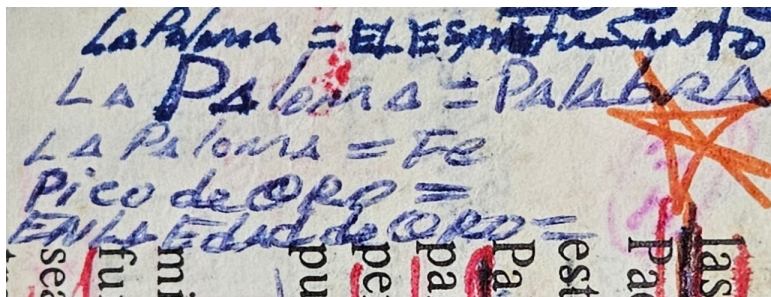 La Paloma = EL ESpiritu Santo
LA PAloma = PAlAbRA
LA PAloma = Fe
Pico de ORO =
EN LA EdAd de ORO =
las
Pac
est
Pa
pa
pe
pu
mi
fu
sea